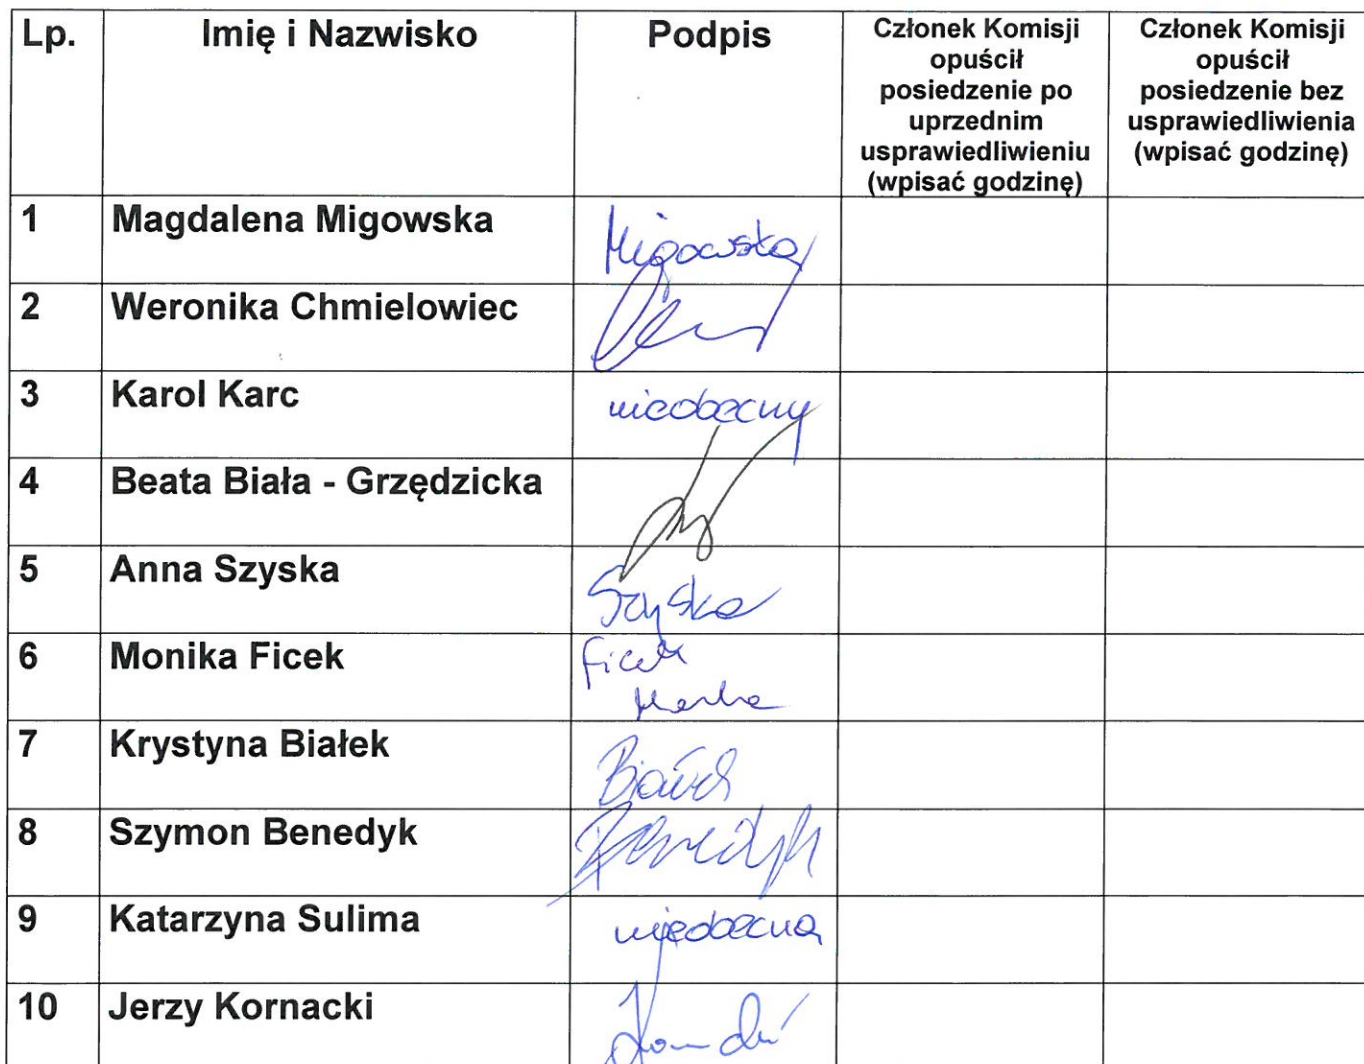 Lp. Imię i Nazwisko Podpis Członek Komisji opuścił posiedzenie po uprzednim usprawiedliwieniu (wpisać godzinę) Członek Komisji opuścił posiedzenie bez usprawiedliwienia (wpisać godzinę)
1 Magdalena Migowska Migowska
2 Weronika Chmielowiec
3 Karol Karc nieobecny
4 Beata Biała - Grzędzicka
5 Anna Szyska Szyska
6 Monika Ficek Ficek
7 Krystyna Białek Białek
8 Szymon Benedyk Benedyk
9 Katarzyna Sulima nieobecna
10 Jerzy Kornacki